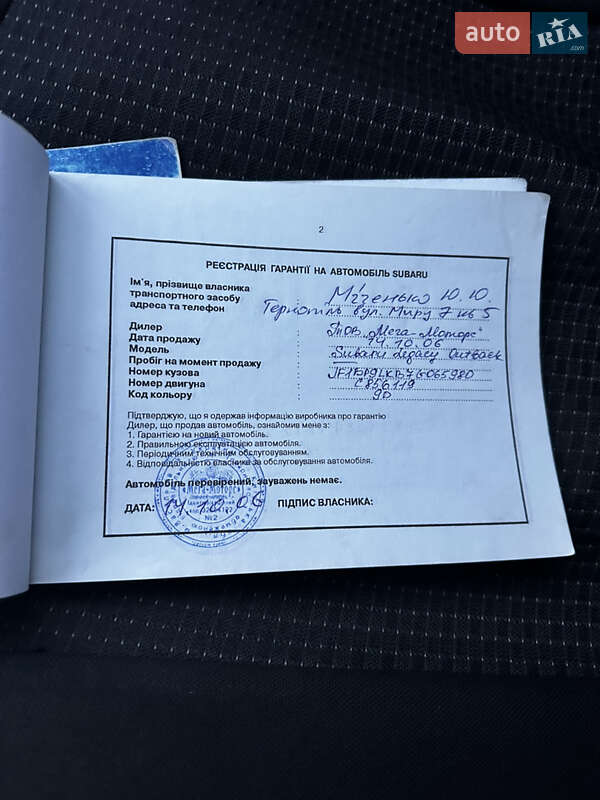 auto RIA.com
2
РЕЄСТРАЦІЯ ГАРАНТІЇ НА АВТОМОБІЛЬ SUBARU
Ім'я, прізвище власника
транспортного засобу : Міченько Ю.Ю.
адреса та телефон Тернопіль вул. Миру 7 кв 5
Дилер : ТОВ „Мега-Моторс"
Дата продажу : 14.10.06
Модель : Subaru Legacy Outback
Пробіг на момент продажу :
Номер кузова : JF1BP9LKB7G065980
Номер двигуна : C856119
Код кольору : 9D
Підтверджую, що я одержав інформацію виробника про гарантію
Дилер, що продав автомобіль, ознайомив мене з:
1. Гарантією на новий автомобіль.
2. Правильною експлуатацією автомобіля.
3. Періодичним технічним обслуговуванням.
4. Відповідальністю власника за обслуговування автомобіля.
Автомобіль перевірений, зауважень немає.
«Мега-Моторс»
ДАТА: 14.10.06 ПІДПИС ВЛАСНИКА:
№2